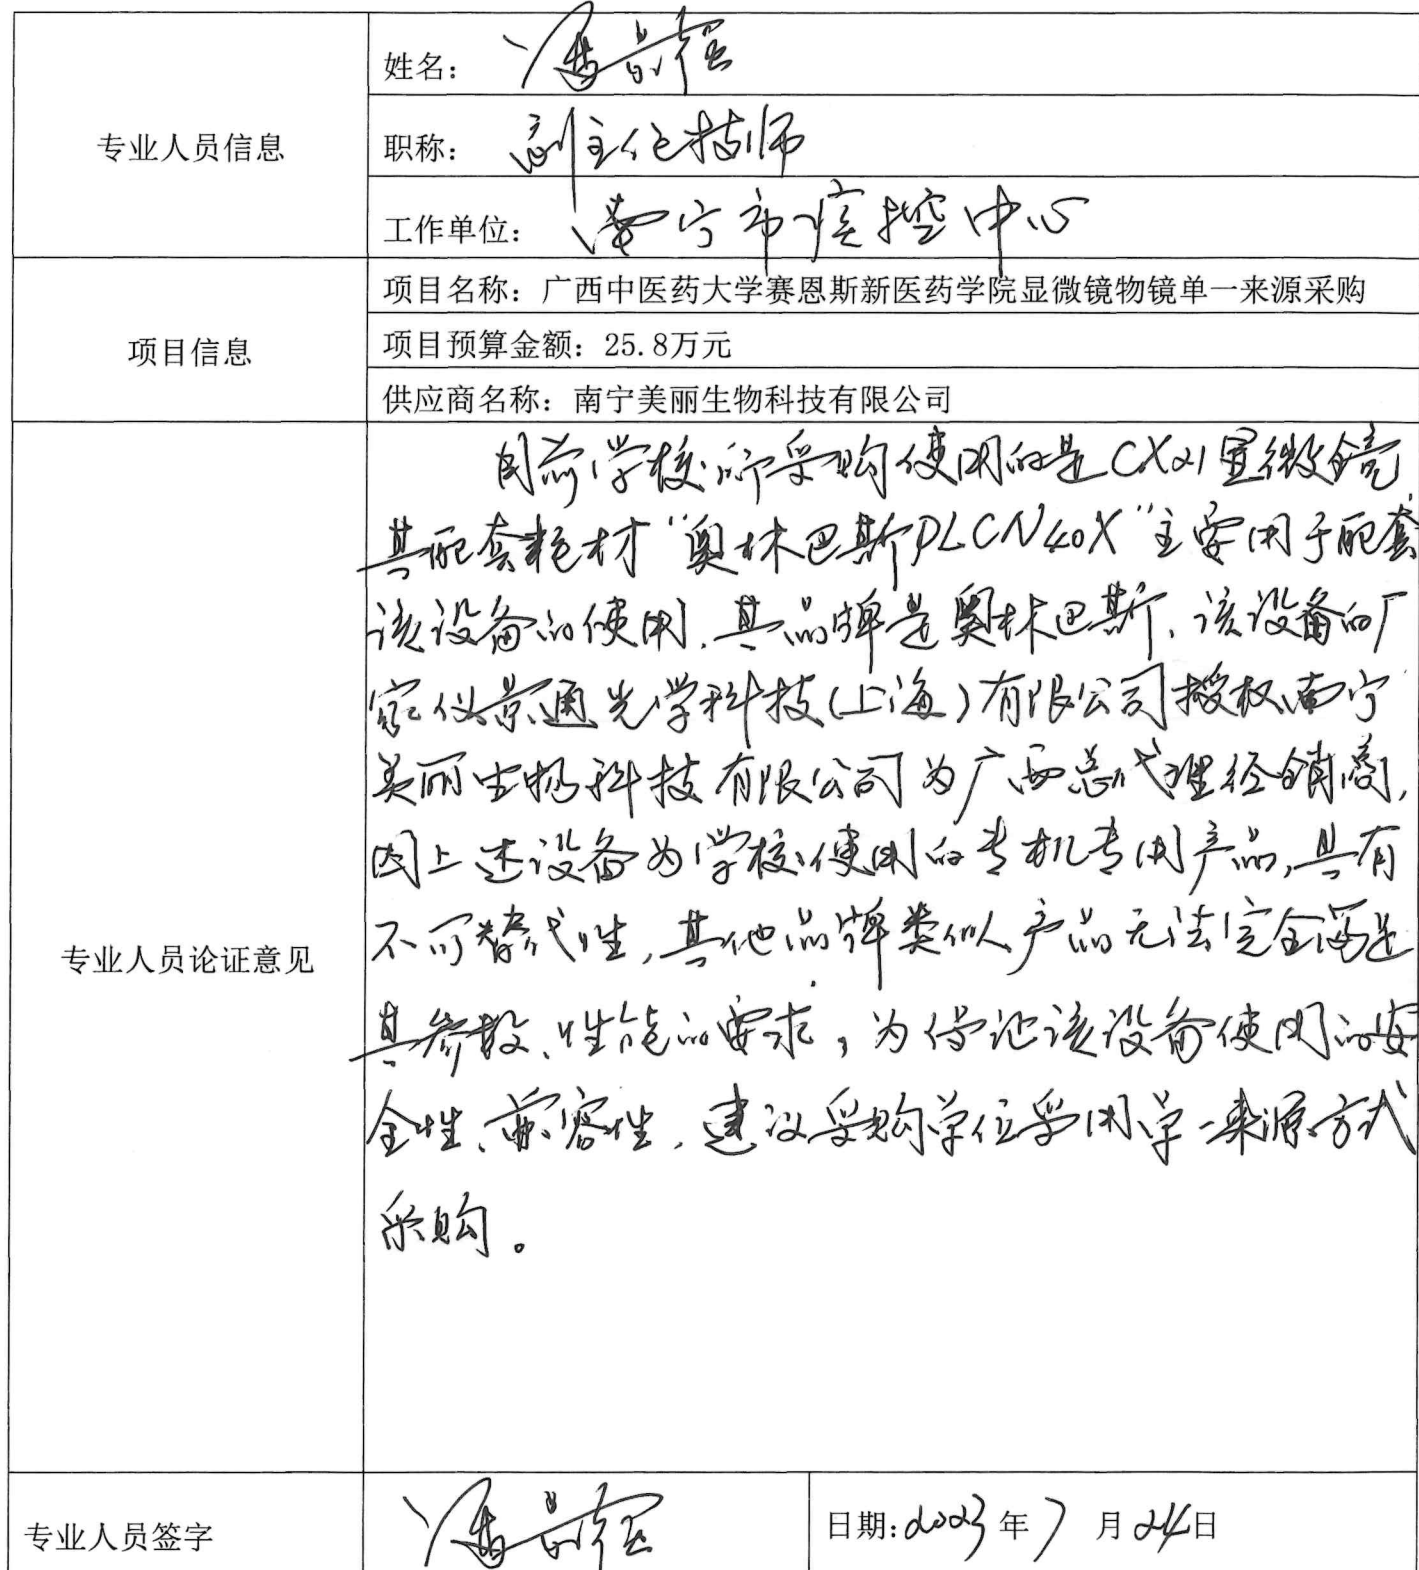 姓名：
专业人员信息
职称：副主任技师
工作单位：南宁市疾控中心
项目名称：广西中医药大学赛恩斯新医药学院显微镜物镜单一来源采购
项目信息
项目预算金额：25.8万元
供应商名称：南宁美丽生物科技有限公司
目前学校所采购使用的是CX21显微镜
其配套耗材“奥林巴斯PLCN40X”主要用于配套
该设备的使用，其品牌是奥林巴斯，该设备的厂
家仪景通光学科技(上海)有限公司授权南宁
美丽生物科技有限公司为广西总代理经销商，
因上述设备为学校使用的专机专用产品，具有
不可替代性，其他品牌类似产品无法完全满足
专业人员论证意见
其参数、性能的要求，为保证该设备使用的安
全性、兼容性，建议采购单位采用单一来源方式
采购。
专业人员签字
日期：2023年7月24日